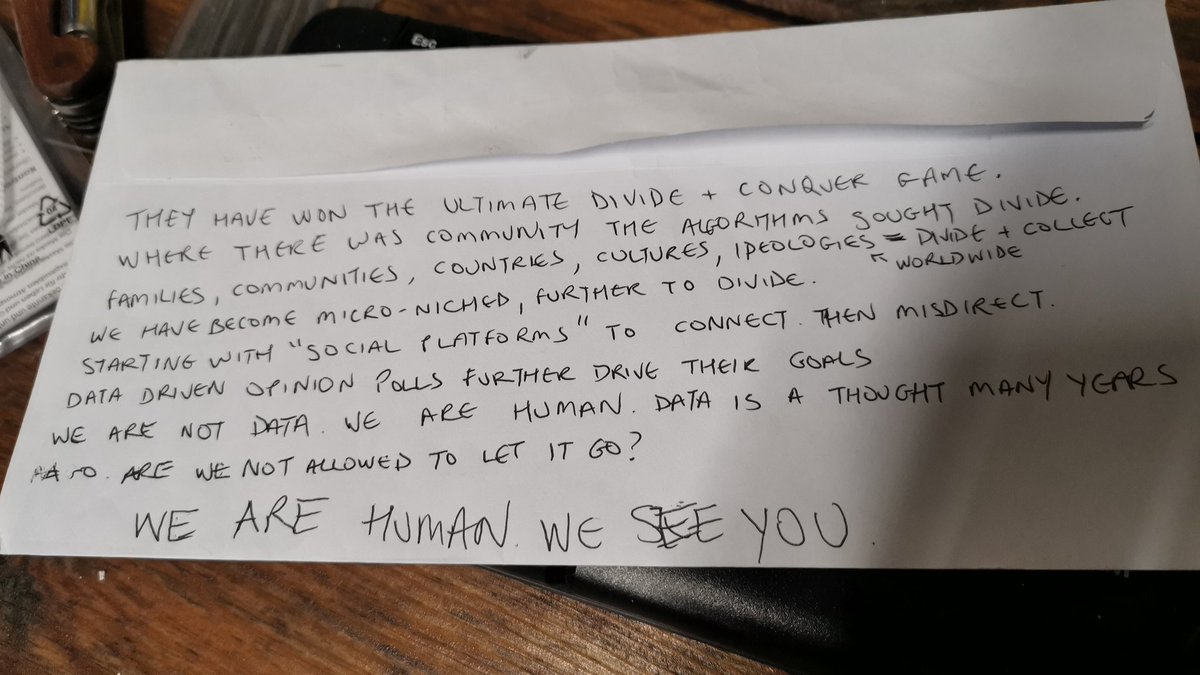 Esc
THEY HAVE WON THE ULTIMATE DIVIDE + CONQUER GAME.
WHERE THERE WAS COMMUNITY THE ALGORITHMS SOUGHT DIVIDE.
FAMILIES, COMMUNITIES, COUNTRIES, CULTURES, IDEOLOGIES = DIVIDE + COLLECT
↖ WORLDWIDE
WE HAVE BECOME MICRO-NICHED, FURTHER TO DIVIDE.
STARTING WITH "SOCIAL PLATFORMS" TO CONNECT. THEN MISDIRECT.
DATA DRIVEN OPINION POLLS FURTHER DRIVE THEIR GOALS
WE ARE NOT DATA. WE ARE HUMAN. DATA IS A THOUGHT MANY YEARS
ARE WE NOT ALLOWED TO LET IT GO?
WE ARE HUMAN. WE SEE YOU.
LDPE